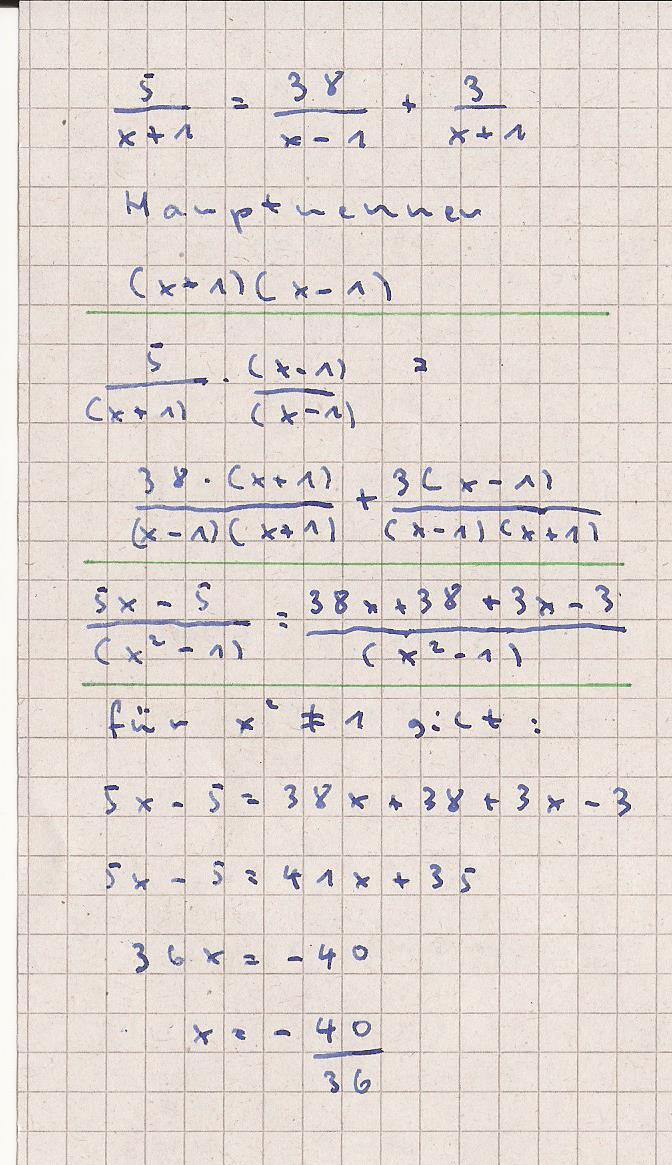 5/(x+1) = 38/(x-1) + 3/(x+1)
Hauptnenner
(x+1)(x-1)
5/(x+1) · (x-1)/(x-1) =
38·(x+1)/(x-1)(x+1) + 3(x-1)/(x-1)(x+1)
5x - 5/(x² - 1) = 38x + 38 + 3x - 3/(x² - 1)
für x² ≠ 1 gilt:
5x - 5 = 38x + 38 + 3x - 3
5x - 5 = 41x + 35
36x = -40
x = - 40/36